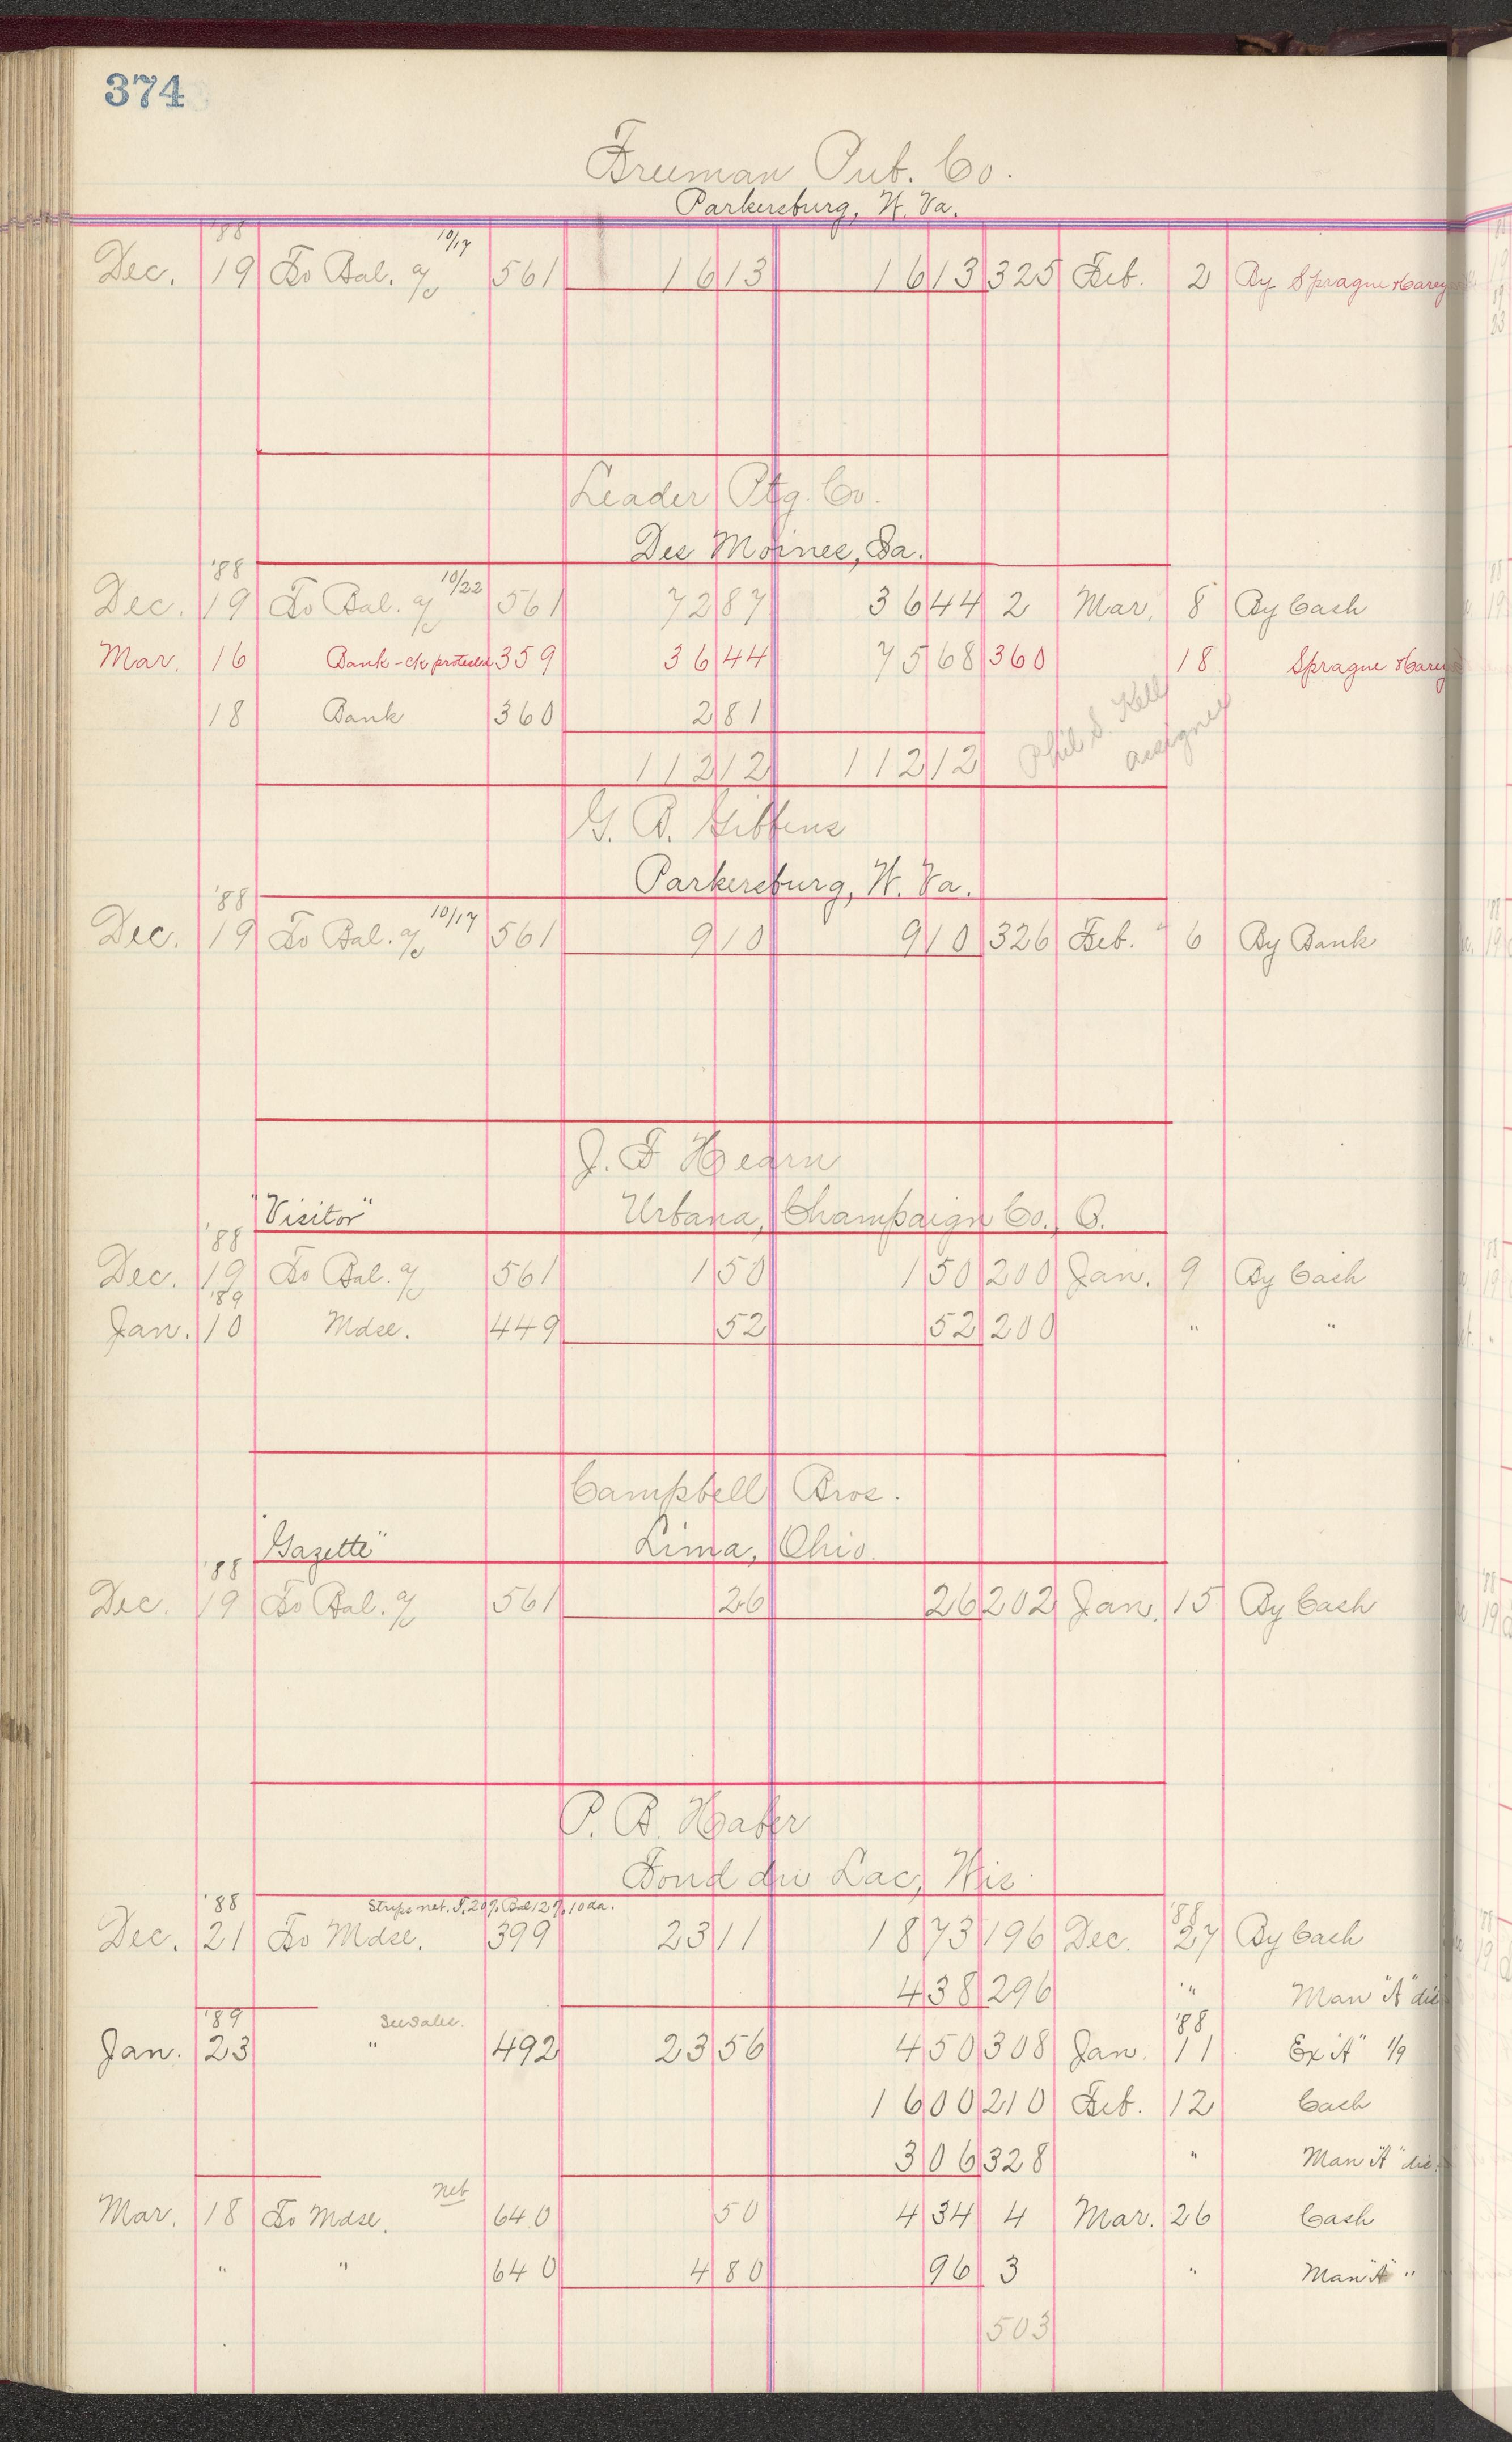 374
Freeman Pub. Co.
Parkersburg, W. Va.
'88
Dec. 19 To Bal. a/c 10/17 561 16 13 16 13 325 Feb. 2 By Sprague Harey
Leader Ptg. Co.
Des Moines, Ia.
'88
Dec. 19 To Bal. a/c 10/22 561 72 87 36 44 2 Mar. 8 By Cash
Mar. 16 Bank-ck protested 359 36 44 75 68 360 18 Sprague Harey
18 Bank 360 2 81
112 12 112 12
Phil S. Kell
assignee
G. B. Gibbens
Parkersburg, W. Va.
'88
Dec. 19 To Bal. a/c 10/17 561 9 10 9 10 326 Feb. 6 By Bank
J. F Hearn
"Visitor" Urbana, Champaign Co., O.
'88
Dec. 19 To Bal. a/c 561 1 50 1 50 200 Jan. 9 By Cash
'89
Jan. 10 Mdse. 449 52 52 200 " "
Campbell Bros.
"Gazette" Lima, Ohio.
'88
Dec. 19 To Bal. a/c 561 26 26 202 Jan. 15 By Cash
P. B. Haber
Fond du Lac, Wis.
'88 Strips net. 5, 20%, Bal 2%, 10 da. '88
Dec. 21 To Mdse. 399 23 11 18 73 196 Dec. 27 By Cash
4 38 296 " Man "A" dis
'89 See sales. '88
Jan. 23 " 492 23 56 4 50 308 Jan. 11 Ex "A" 1/9
16 00 210 Feb. 12 Cash
3 06 328 " Man "A" dis.
Mar. 18 To Mdse. net 640 50 4 34 4 Mar. 26 Cash
" " 640 4 80 96 3 " Man "A" "
503